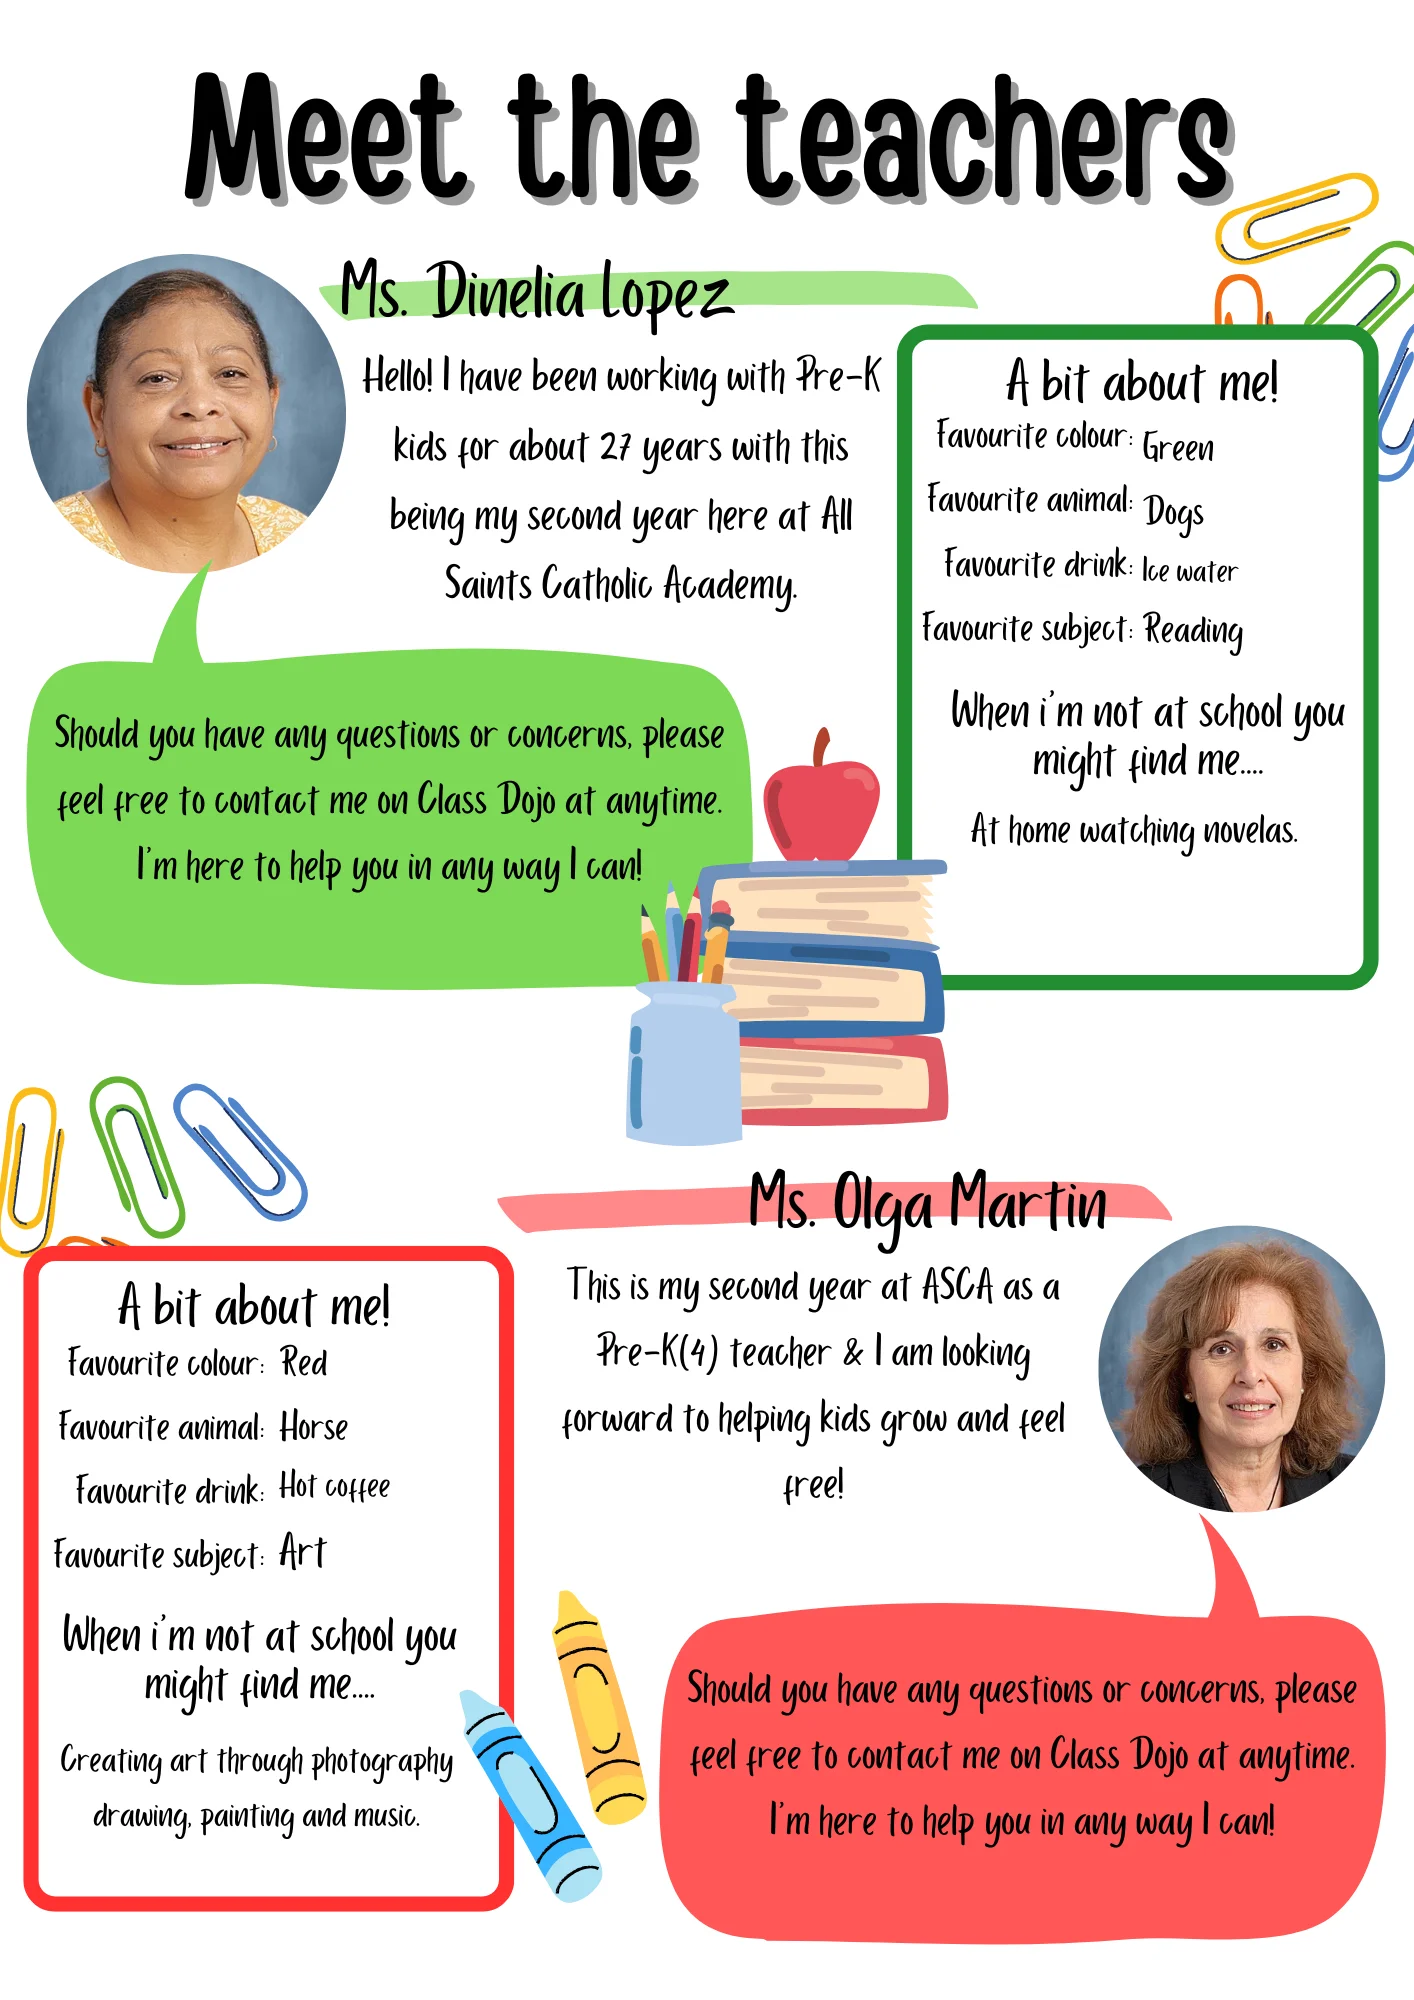 Meet the teachers
Ms. Dinelia Lopez
Hello! I have been working with Pre-K
kids for about 27 years with this
being my second year here at All
Saints Catholic Academy.
A bit about me!
Favourite colour: Green
Favourite animal: Dogs
Favourite drink: Ice water
Favourite subject: Reading
When i'm not at school you
might find me....
At home watching novelas.
Should you have any questions or concerns, please
feel free to contact me on Class Dojo at anytime.
I'm here to help you in any way I can!
Ms. Olga Martin
This is my second year at ASCA as a
Pre-K(4) teacher & I am looking
forward to helping kids grow and feel
free!
A bit about me!
Favourite colour: Red
Favourite animal: Horse
Favourite drink: Hot coffee
Favourite subject: Art
When i'm not at school you
might find me....
Creating art through photography
drawing, painting and music.
Should you have any questions or concerns, please
feel free to contact me on Class Dojo at anytime.
I'm here to help you in any way I can!